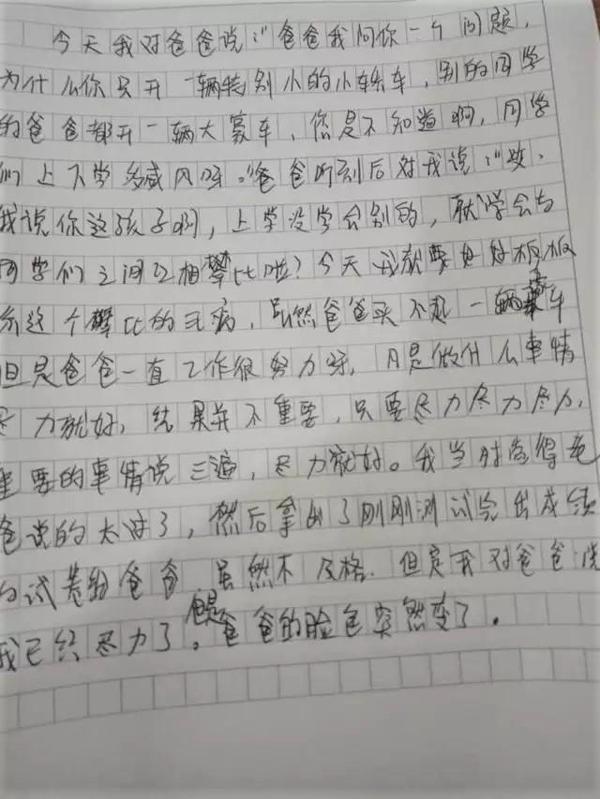 今天我对爸爸说:"爸爸我问你一个问题,
为什么你只开一辆特别小的小轿车,别的同学
的爸爸都开一辆大豪车,您是不知道啊,同学
们上下学多威风呀。"爸爸听到后对我说:"哎,
我说你这孩子啊,上学没学会别的,就学会与
同学们之间互相攀比啦?今天我就要好好板板
你这个攀比的毛病,虽然爸爸买不起一辆豪车
但是爸爸一直工作很努力呀,凡是做什么事情
尽力就好,结果并不重要,只要尽力尽力尽力,
重要的事情说三遍,尽力就好。我当时觉得爸
爸说的太对了,然后拿出了刚刚测试完出成绩
的试卷给爸爸,虽然不及格.但是我对爸爸说
我已经尽力了。但是爸爸的脸色突然变了.